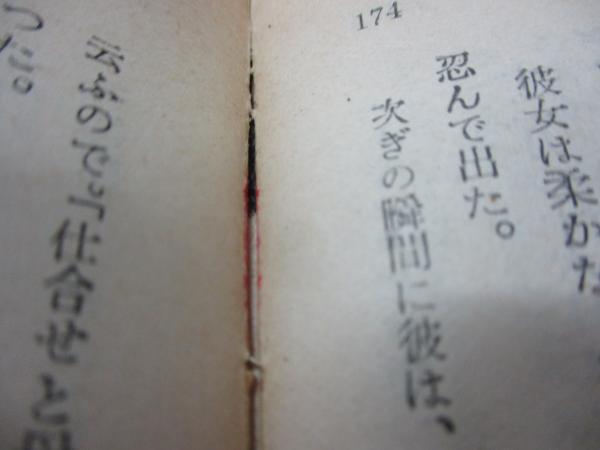 174
彼女は柔かな
忍んで出た。
次ぎの瞬間に彼は、
云ふので「仕合せと
つた。